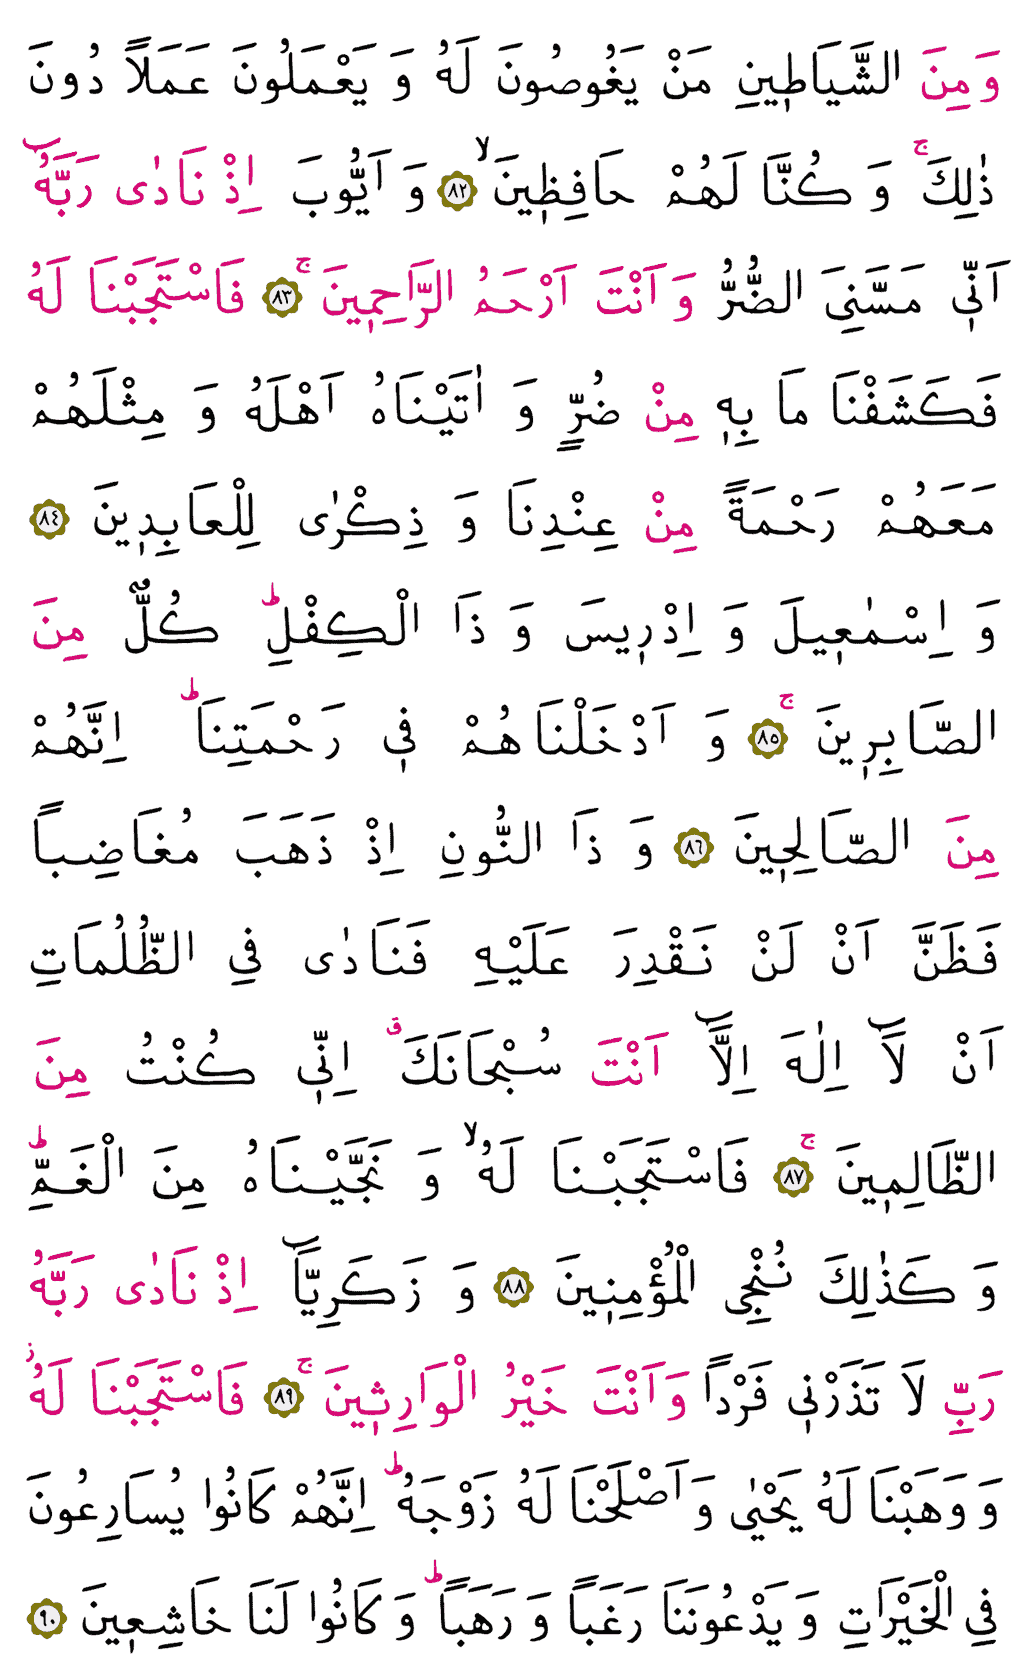 وَ مِنَ الشَّيَاطٖينِ مَنْ يَغُوصُونَ لَهُ وَ يَعْمَلُونَ عَمَلاً دُونَ
ذٰلِكَۚ وَ كُنَّا لَهُمْ حَافِظٖينَۙ ﴿٨٢﴾ وَ اَيُّوبَ اِذْ نَادٰى رَبَّهُٓ
اَنّٖي مَسَّنِيَ الضُّرُّ وَ اَنْتَ اَرْحَمُ الرَّاحِمٖينَۚ ﴿٨٣﴾ فَاسْتَجَبْنَا لَهُ
فَكَشَفْنَا مَا بِهٖ مِنْ ضُرٍّ وَ اٰتَيْنَاهُ اَهْلَهُ وَ مِثْلَهُمْ
مَعَهُمْ رَحْمَةً مِنْ عِنْدِنَا وَ ذِكْرٰى لِلْعَابِدٖينَ ﴿٨٤﴾
وَ اِسْمٰعٖيلَ وَ اِدْرٖيسَ وَ ذَا الْكِفْلِۜ كُلٌّ مِنَ
الصَّابِرٖينَۚ ﴿٨٥﴾ وَ اَدْخَلْنَاهُمْ فٖي رَحْمَتِنَاۜ اِنَّهُمْ
مِنَ الصَّالِحٖينَ ﴿٨٦﴾ وَ ذَا النُّونِ اِذْ ذَهَبَ مُغَاضِباً
فَظَنَّ اَنْ لَنْ نَقْدِرَ عَلَيْهِ فَنَادٰى فِي الظُّلُمَاتِ
اَنْ لَٓا اِلٰهَ اِلَّٓا اَنْتَ سُبْحَانَكَۗ اِنّٖي كُنْتُ مِنَ
الظَّالِمٖينَۚ ﴿٨٧﴾ فَاسْتَجَبْنَا لَهُۙ وَ نَجَّيْنَاهُ مِنَ الْغَمِّۜ
وَ كَذٰلِكَ نُنْجِي الْمُؤْمِنٖينَ ﴿٨٨﴾ وَ زَكَرِيَّٓا اِذْ نَادٰى رَبَّهُ
رَبِّ لَا تَذَرْنٖي فَرْداً وَ اَنْتَ خَيْرُ الْوَارِثٖينَۚ ﴿٨٩﴾ فَاسْتَجَبْنَا لَهُؗ
وَ وَهَبْنَا لَهُ يَحْيٰى وَ اَصْلَحْنَا لَهُ زَوْجَهُۜ اِنَّهُمْ كَانُوا يُسَارِعُونَ
فِي الْخَيْرَاتِ وَ يَدْعُونَنَا رَغَباً وَ رَهَباًۜ وَ كَانُوا لَنَا خَاشِعٖينَ ﴿٩٠﴾